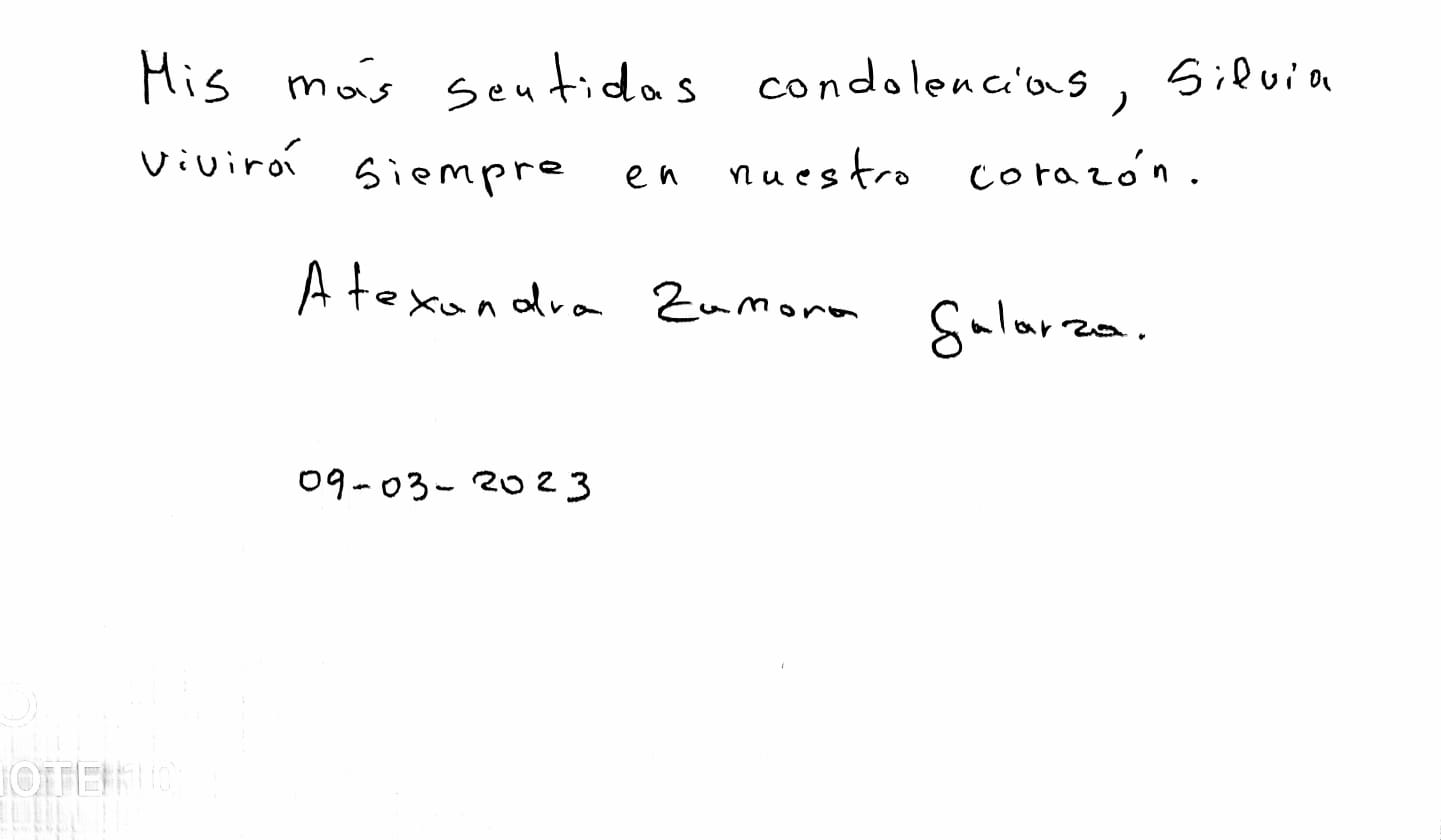 Mis más sentidas condolencias, Silvia
vivirá siempre en nuestro corazón.
Alexandra Zamora Galarza.
09-03-2023